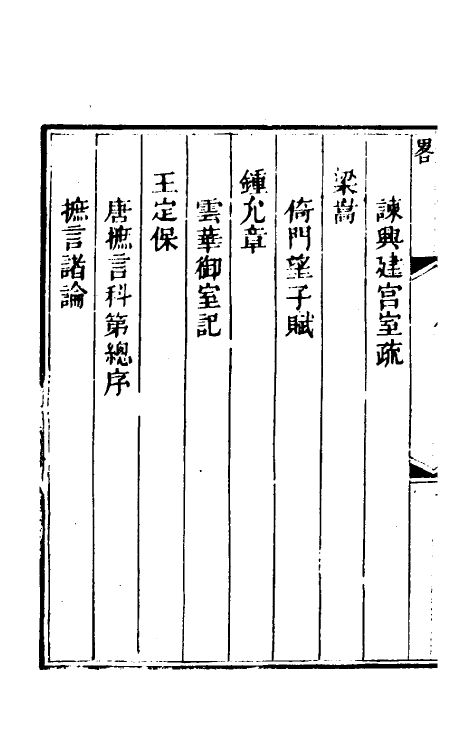 畧
諫興建宫室疏
梁嵩
倚門望子賦
鍾允章
雲華御室記
王定保
唐摭言科第總序
摭言諸論